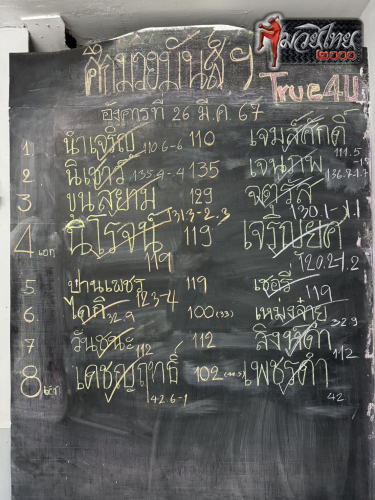 มวยไทย 2000
ศึกมวยมันส์ๆ
True4U
อังคารที่ 26 มี.ค. 67
1 นำเจริญ 110.6-6 110 เจมส์ศักดิ์ 111.5
2 นิเชาว์ 135.9-4 135 เจนภพ 136.7-1.7
3 ขุนสยาม 131.3-2.3 129 ฉตวัส 130.1-1.1
4 เอก นิโรจน์ 119 119 เจริญยศ 120.2-1.2
5. ปานเพชร 123-4 119 เชอรี่ 119
6. ไดกิ 32.9 100 (33) เหมงจ๋าย 32.9
7 วันชนะ 112 112 สิงห์ดำ 112
8 เอก เดชฤทธิ์ 42.6-1 102 เพชรดำ 42